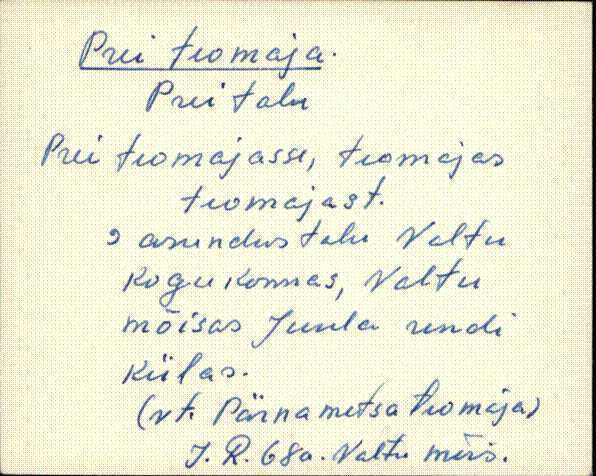 Prei teomaja.
Prei talu
Prei teomajasse, teomajas
teomajast.
asundustalu Valtu
kogukonnas, Valtu
mõisas Juula uudi
külas.
(vt. Pärnametsa teomaja)
J. R. 68a. Valtu mõis.